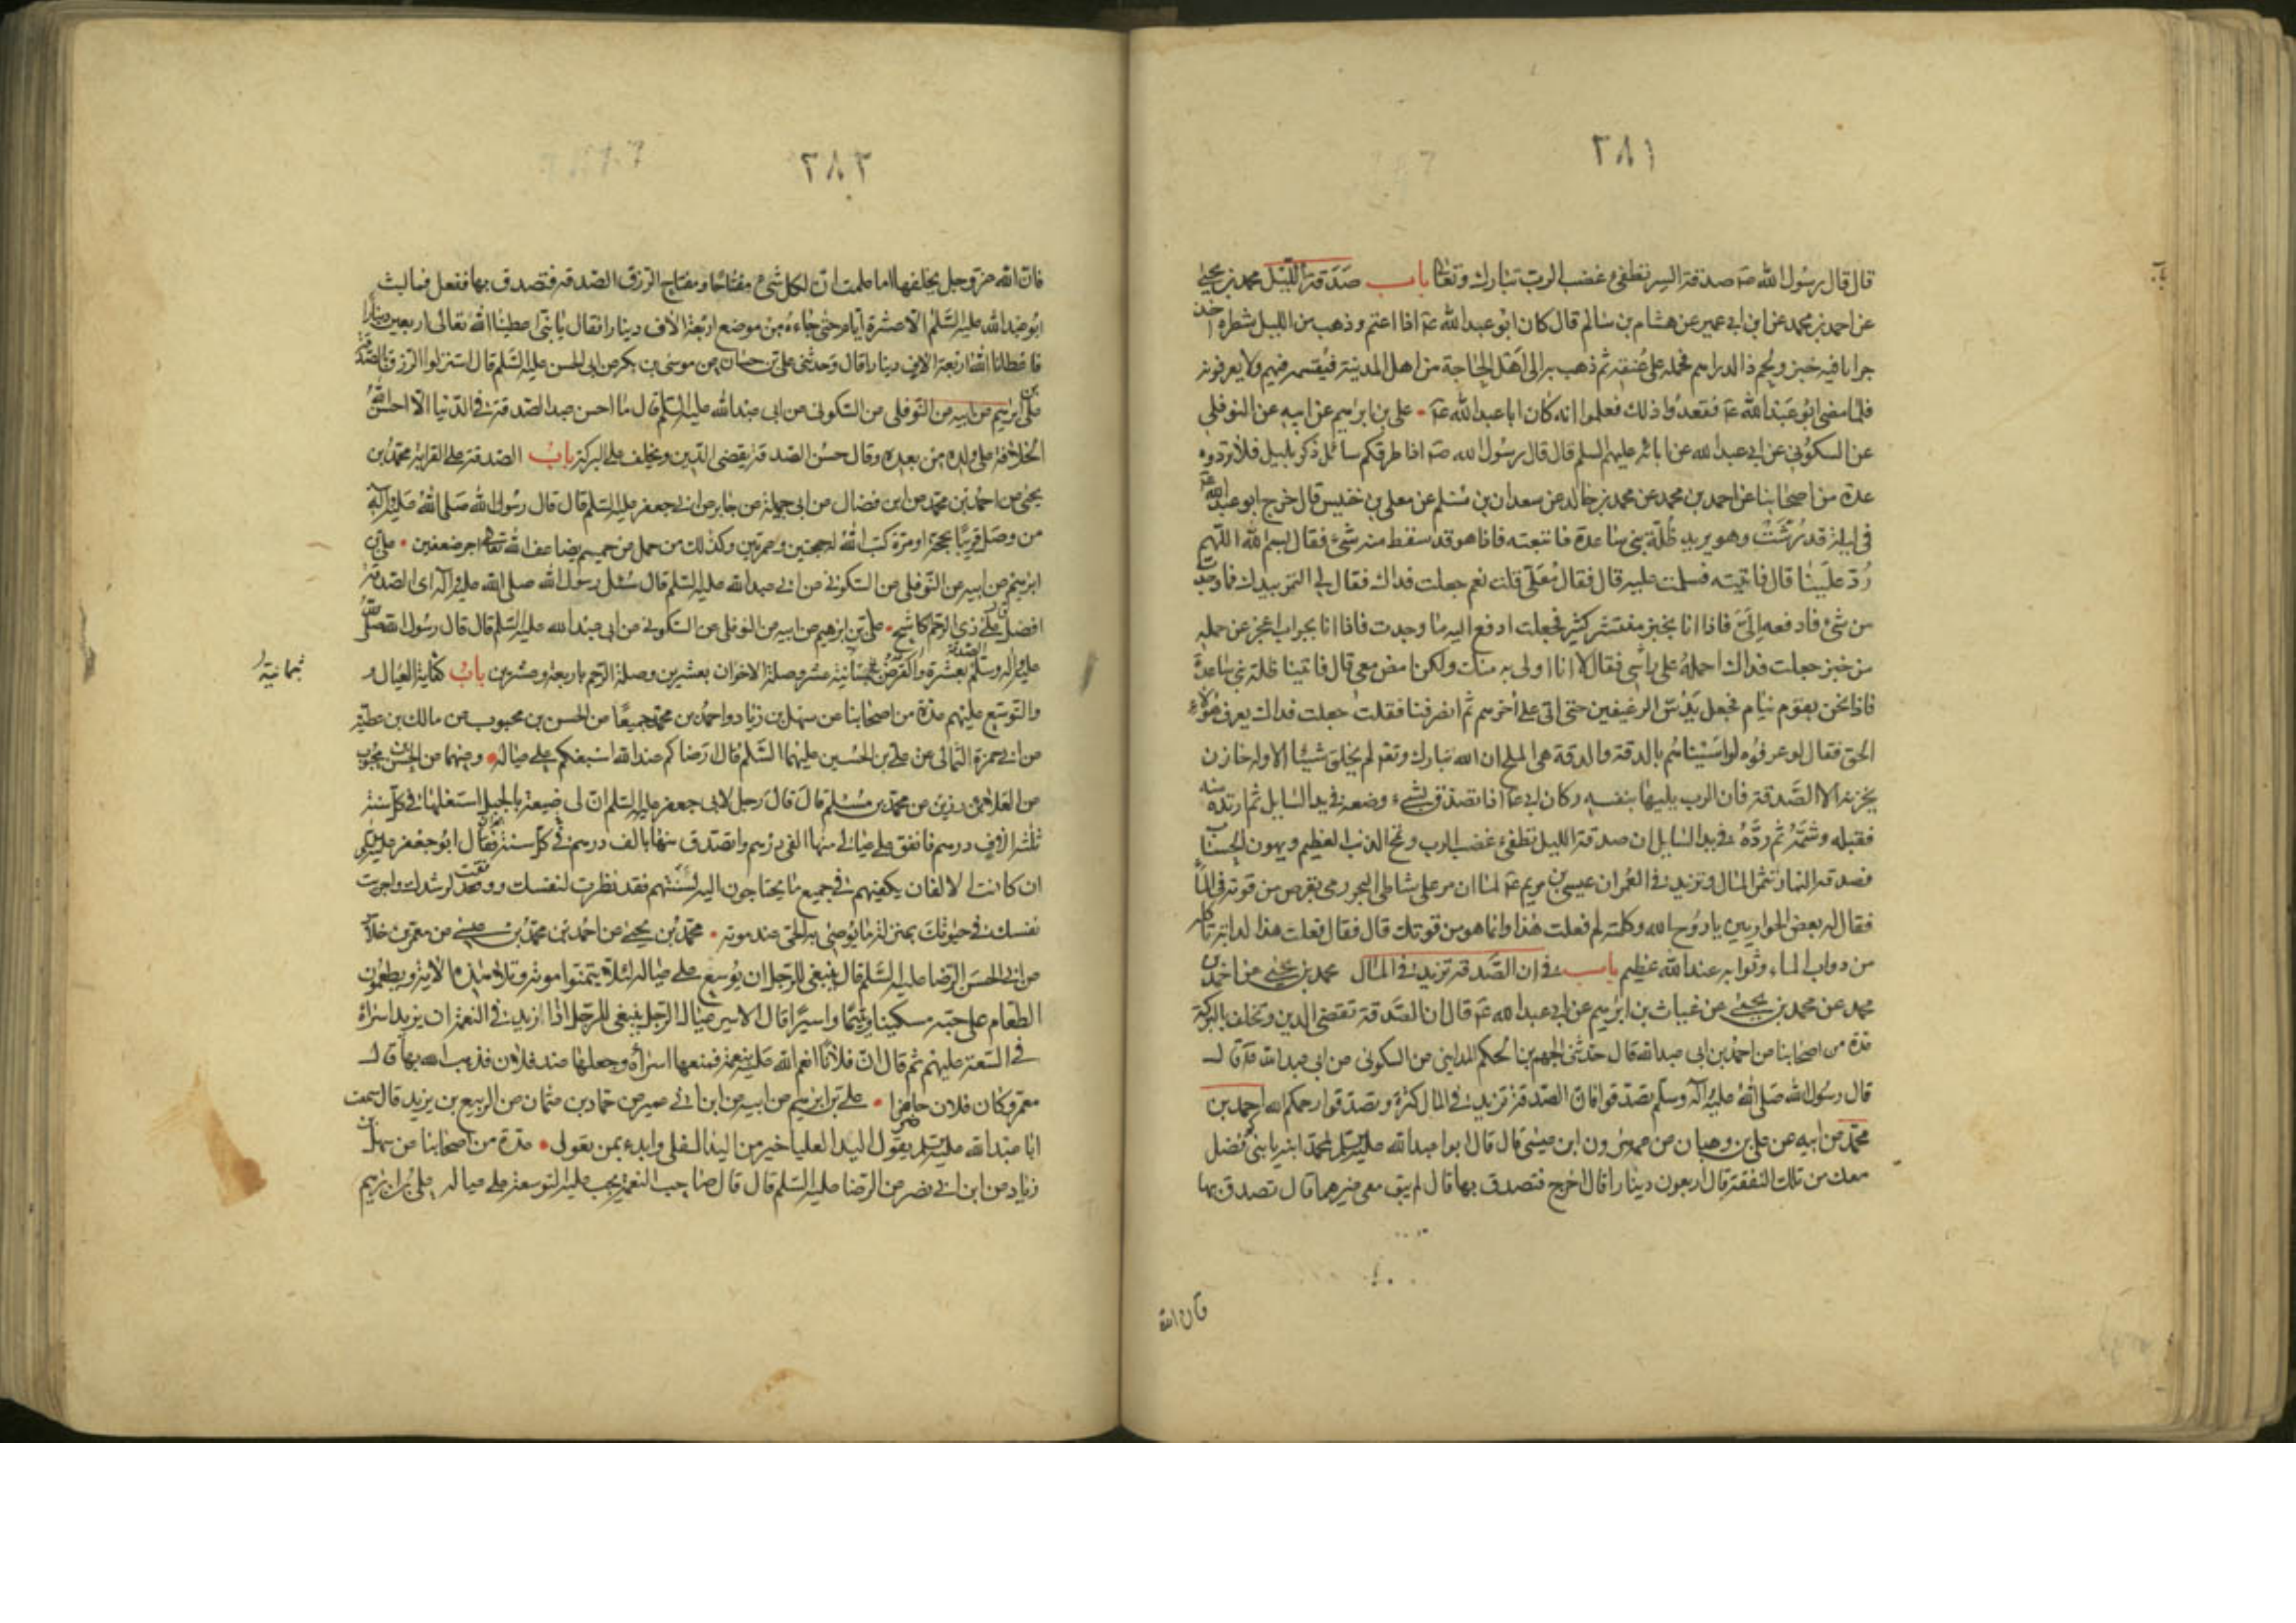 ٣٨١
قال قال رسول الله صه صدقة السر تطفئ غضب الرب تبارك وتعالى باب صدقة الليل محمد بن يحيى
عن احمد بن محمد عن ابن ابي عمير عن هشام بن سالم قال كان ابو عبد الله عه اذا اعتم وذهب من الليل شطره اخذ
جرابا فيه خبز ولحم والدراهم فحمله على عنقه ثم ذهب به الى اهل الحاجة من اهل المدينة فيقسمه فيهم ولا يعرفونه
فلما مضى ابو عبد الله عه فقدوا ذلك فعلموا انه كان ابا عبد الله عه علي بن ابراهيم عن ابيه عن النوفلي
عن السكوني عن ابي عبد الله عن ابائه عليهم السلم قال قال رسول الله صه اذا طرقكم سائل ذكر بليل فلا تردوه
عدة من اصحابنا عن احمد بن محمد عن محمد بن خالد عن سعدان بن مسلم عن معلى بن خنيس قال خرج ابو عبد الله عه
في ليلة قد رشت وهو يريد ظلة بني ساعدة فاتبعته فاذا هو قد سقط منه شئ فقال بسم الله اللهم
رد علينا قال فاتيته فسلمت عليه قال فقال معلى قلت نعم جعلت فداك فقال لي التمس بيدك فما وجدت
من شئ فادفعه الي فاذا انا بخبز منتشر كثير فجعلت ادفع اليه ما وجدت فاذا انا بجراب اعجز عن حمله
من خبز جعلت فداك احمله على راسي فقال لا انا اولى به منك ولكن امض معي قال فاتينا ظلة بني ساعدة
فاذا نحن بقوم نيام فجعل يدس الرغيفين حتى اتى على اخرهم ثم انصرفنا فقلت جعلت فداك يعرف هؤلاء
الحق فقال لو عرفوه لواسيناهم بالدقة والدقة هي الملح ان الله تبارك وتعه لم يخلق شيئا الا وله خازن
يخزنه الا الصدقة فان الرب يليها بنفسه وكان ابي عه اذا تصدق بشئ وضعه في يد السايل ثم ارتده منه
فقبله وشمه ثم رده في يد السايل ان صدقة الليل تطفئ غضب الرب وتمحو الذنب العظيم ويهون الحساب
وصدقة النهار تثمر المال وتزيد في العمر ان عيسى بن مريم عه لما ان مر على شاطئ البحر رمى بقرص من قوته في الماء
فقال له بعض الحواريين يا روح الله وكلمته لم فعلت هذا وانما هو من قوتك قال فقال فعلت هذا لدابة تاكله
من دواب الماء وثوابه عند الله عظيم باب في ان الصدقة تزيد في المال محمد بن يحيى عن احمد بن
محمد عن محمد بن يحيى عن غياث بن ابراهيم عن ابي عبد الله عه قال ان الصدقة تقضي الدين وتخلف بالبركة
عدة من اصحابنا عن احمد بن ابي عبد الله قال حدثني الجهم بن الحكم المدايني عن السكوني عن ابي عبد الله عه قال
قال رسول الله صلى الله عليه وآله وسلم تصدقوا فان الصدقة تزيد في المال كثرة وتصدقوا رحمكم الله احمد بن
محمد عن ابيه عن علي بن وهبان عن عمه هرون ابن عيسى قال قال ابو عبد الله عليه السلم لمحمد ابنه يا بني كم فضل
معك من تلك النفقة قال اربعون دينارا قال اخرج فتصدق بها قال لم يبق معي غيرها قال تصدق بها
فان الله
٣٨٢
فان الله عز وجل يخلفها اما علمت ان لكل شئ مفتاحا ومفتاح الرزق الصدقة فتصدق بها ففعل فما لبث
ابو عبد الله عليه السلم الا عشرة ايام حتى جاءه من موضع اربعة الاف دينار فقال يا بني اعطينا الله تعالى اربعين دينارا
فاعطانا الله اربعة الاف دينار قال وحدثني علي بن حسان عن موسى بن بكر عن ابي الحسن عليه السلم قال استنزلوا الرزق بالصدقة
علي بن ابراهيم عن ابيه عن النوفلي عن السكوني عن ابي عبد الله عليه السلم قال ما احسن عبد الصدقة في الدنيا الا احسن الله
الخلافة على ولده من بعده وقال حسن الصدقة يقضي الدين ويخلف على البركة باب الصدقة على القرابة محمد بن
يحيى عن احمد بن محمد عن ابن فضال عن ابي جميلة عن جابر عن ابي جعفر عليه السلم قال قال رسول الله صلى الله عليه وآله
من وصل قريبا بحجة او عمرة كتب الله له حجتين وعمرتين وكذلك من حمل عن حميم يضاعف الله تعالى له اجر ضعفين علي بن
ابراهيم عن ابيه عن النوفلي عن السكوني عن ابي عبد الله عليه السلم قال سئل رسول الله صلى الله عليه وآله اي الصدقة
افضل قال على ذي الرحم الكاشح علي بن ابراهيم عن ابيه عن النوفلي عن السكوني عن ابي عبد الله عليه السلم قال قال رسول الله صلى الله
عليه وآله وسلم الصدقة بعشرة والقرض بثمانية عشر وصلة الاخوان بعشرين وصلة الرحم باربعة وعشرين باب كفاية العيال و
بثمانية
والتوسع عليهم عدة من اصحابنا عن سهل بن زياد واحمد بن محمد جميعا عن الحسن بن محبوب عن مالك بن عطية
عن ابي حمزة الثمالي عن علي بن الحسين عليهما السلم قال ارضاكم عند الله اسبغكم على عياله وعنهما عن الحسن بن محبوب
عن العلا بن رزين عن محمد بن مسلم قال قال رجل لابي جعفر عليه السلم ان لي ضيعة بالجبل استغلها في كل سنة
ثلثة الاف درهم فانفق على عيالي منها الفي درهم واتصدق منها بالف درهم في كل سنة فقال ابو جعفر عليه السلم
ان كانت الالفان يكفيهم في جميع ما يحتاجون اليه لسنتهم فقد نظرت لنفسك ووفقت لرشدك واجريت
نفسك في حيوتك بمنزلة ما يوصي به الحي عند موته محمد بن يحيى عن احمد بن محمد بن عيسى عن معمر بن خلاد
عن ابي الحسن الرضا عليه السلم قال ينبغي للرجل ان يوسع على عياله لئلا يتمنوا موته وتلا هذه الاية ويطعمون
الطعام على حبه مسكينا ويتيما واسيرا قال الاسير عيال الرجل ينبغي للرجل اذا زيد في النعمة ان يزيد اسراءه
في السعة عليهم ثم قال ان فلانا انعم الله عليه بنعمة فمنعها اسراءه وجعلها عند فلان فذهب الله بها قال
معمر وكان فلان حاضرا علي بن ابراهيم عن ابيه عن ابن ابي عمير عن حماد بن عثمان عن الربيع بن يزيد قال سمعت
ابا عبد الله عليه السلم يقول اليد العليا خير من اليد السفلى وابدء بمن تعول عدة من اصحابنا عن سهل بن
زياد عن ابن ابي نصر عن الرضا عليه السلم قال قال صاحب النعمة يجب عليه التوسعة على عياله علي بن ابراهيم